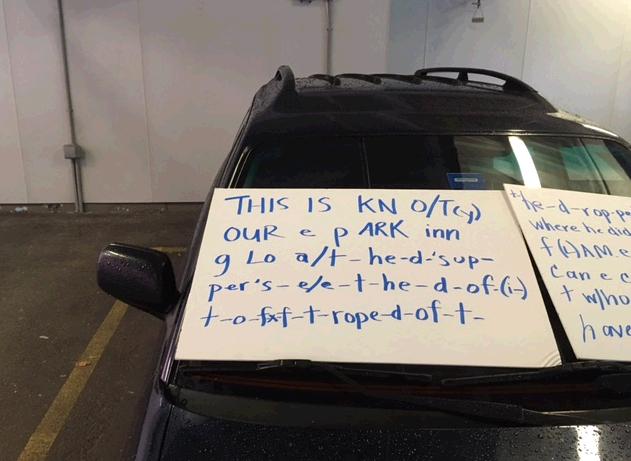 THIS IS KN O/T(y)
OUR e p ARK inn
g Lo a/t-he-d-'sup-
per's-e/e-t-he-d-of-(i-)
t-o-fxf-t-rope-d-of-t-
the-d-rop-po
where he did
f(L)AM e
can e c
t w/ho
have